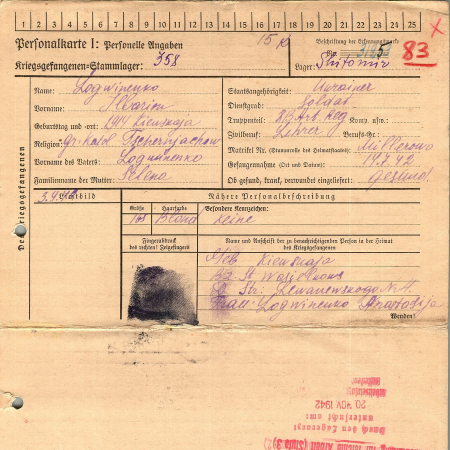 1 2 3 4 5 6 7 8 9 10 11 12 13 14 15 16 17 18 19 20 21 22 23 24 25
Personalkarte I: Personelle Angaben
15
Beschriftung der Erkennungsmarke
Nr.
83
Kriegsgefangenen-Stammlager: 358
Lager: Shitomir
Des Kriegsgefangenen
Name: Logwinenko
Vorname: Illarion
Geburtstag und -ort: 1914 Kiewskaja
Religion: gr. Kath. Tschernjachow
Vorname des Vaters: Logwinenko
Familienname der Mutter: Elena
Staatsangehörigkeit: Ukrainer
Dienstgrad: Soldat
Truppenteil: Art. Reg Kom. usw.:
Zivilberuf: Lehrer Berufs-Gr.:
Matrikel Nr. (Stammrolle des Heimatstaates):
Gefangennahme (Ort und Datum): Millerowo 14.7.42
Ob gesund, krank, verwundet eingeliefert: gesund
Lichtbild
Nähere Personalbeschreibung
Größe
Haarfarbe
Besondere Kennzeichen:
168
Blond
keine
Fingerabdruck
des rechten! Zeigefingers
Name und Anschrift der zu benachrichtigenden Person in der Heimat
des Kriegsgefangenen
Geb Kiewskaja
St. Wasilkow
Str.
Frau: Logwinenko
Wenden!
20. NOV. 1942
Durch den Lagerarzt
untersucht am:
Arbeit (Stufe 3)